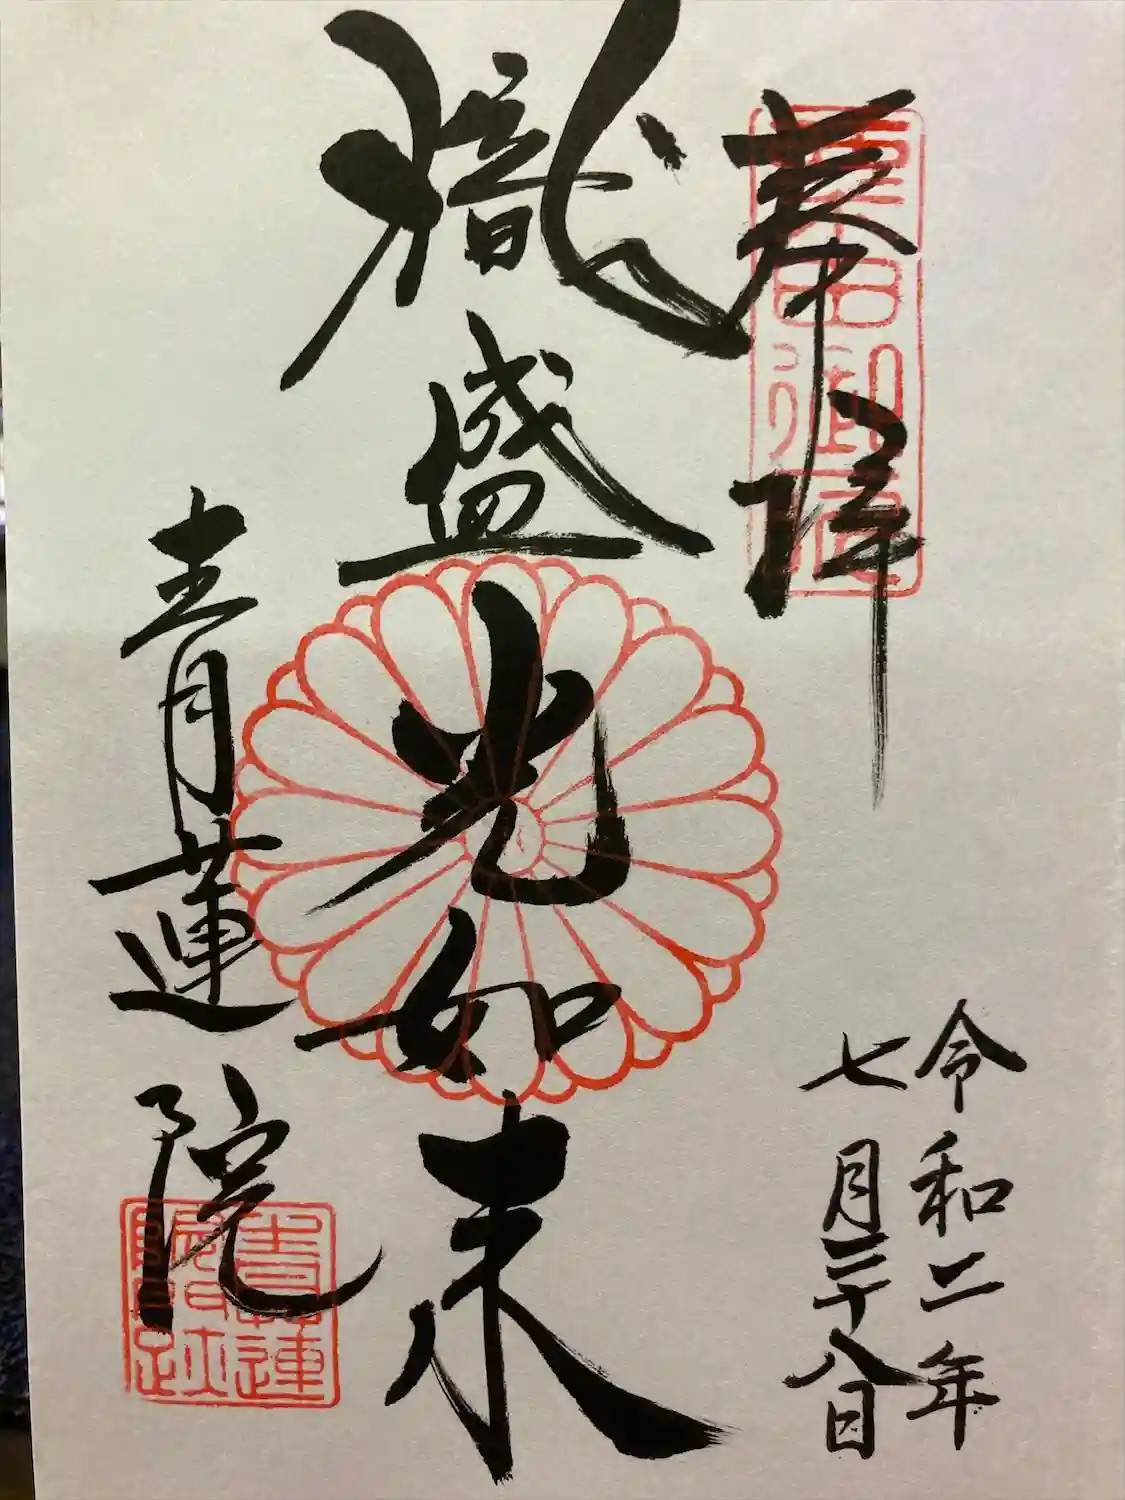 奉拝
粟田御所
令和二年
七月二十八日
熾盛光如来
青蓮院
青蓮院門跡